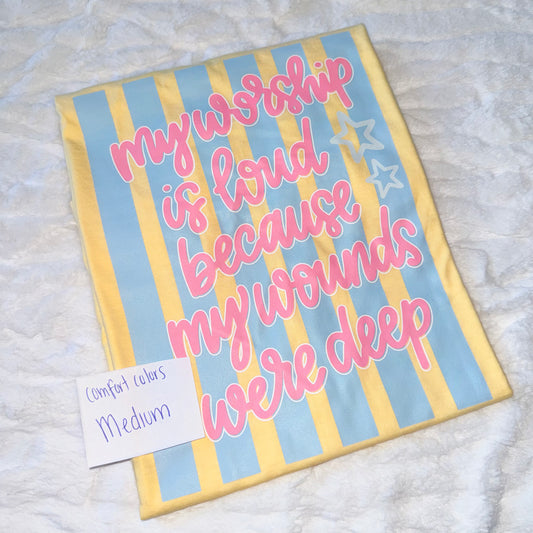 my worship
is loud
because
my wounds
were deep
comfort colors
Medium